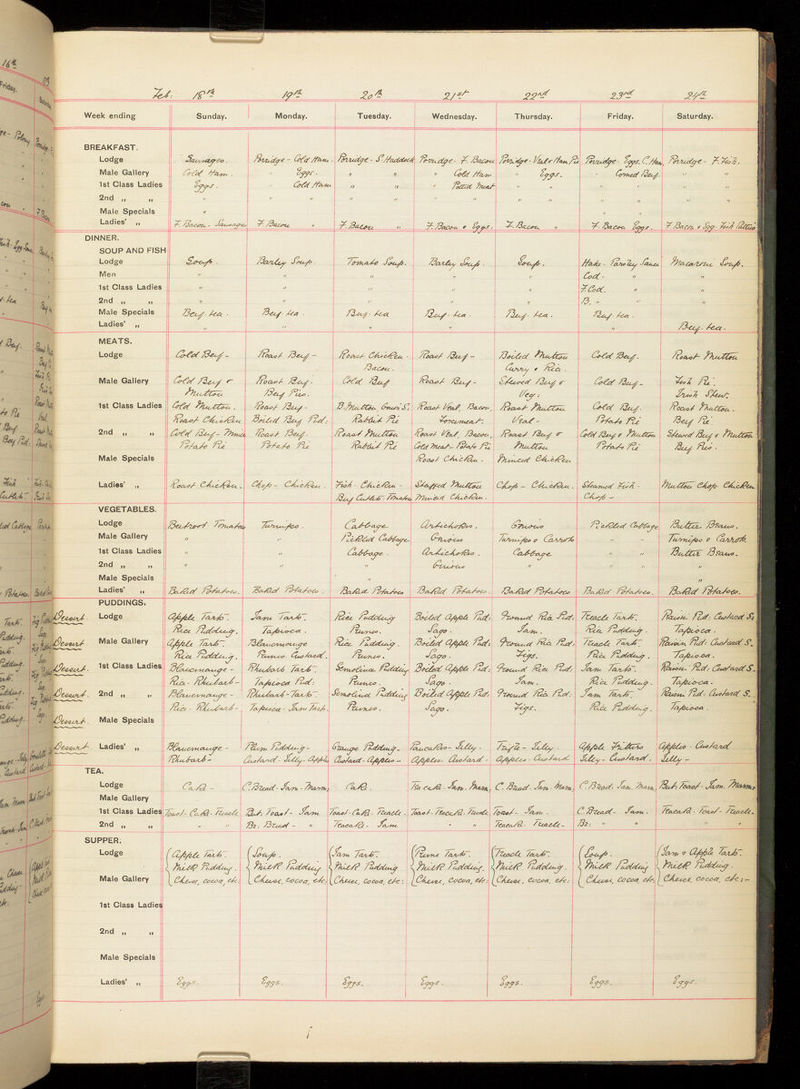 Feb: 18th 19th 20th 21st 22nd 23rd 24th
Week ending Sunday. Monday. Tuesday. Wednesday. Thursday. Friday. Saturday.
BREAKFAST.
Lodge Sausages. Porridge - Cold Ham. Porridge - S. Haddock Porridge - F. Bacon Porridge - Veal & Ham Pie Porridge. Eggs. C. Ham Porridge - F. Fish.
Male Gallery Cold Ham. Eggs. " " " Cold Ham " Eggs. " Corned Beef. " "
1st Class Ladies Eggs. Cold Ham " " " Potted Meat " " " "
2nd " "
Male Specials "
Ladies' " F. Bacon - Sausages F. Bacon " F. Bacon " F. Bacon & Eggs. F. Bacon " F. Bacon Eggs. F. Bacon & Egg - Fish Cutlets
DINNER.
SOUP AND FISH
Lodge Soup. Barley Soup. Tomato Soup. Barley Soup. Soup. Hake - Parsley Sauce Macaroni Soup.
Men " " " " " Cod. " "
1st Class Ladies " " " " " F. Cod. " "
2nd " " " " " " " B. " " "
Male Specials Beef tea. Beef tea. Beef tea Beef tea Beef tea. Beef tea.
Ladies' " " " " " Beef tea.
MEATS.
Lodge Cold Beef - Roast Beef - Roast Chicken. Roast Beef - Boiled Mutton Cold Beef. Roast Mutton
Bacon. Curry & Rice.
Male Gallery Cold Beef & Roast Beef. Cold Beef Roast Beef - Stewed Beef & Cold Beef. Fish Pie.
Mutton Beef Pies. Veg: Irish Stew.
1st Class Ladies Cold Mutton. Roast Beef - B. Mutton Onion S. Roast Veal, Bacon, Roast Mutton Cold Beef. Roast Mutton.
Roast Chicken Boiled Beef Pud: Rabbit Pie Forcemeat. Veal - Potato Pie Beef Pie
2nd " " Cold Beef - Roast Beef. Roast Mutton Roast Veal, Bacon, Roast Beef & Cold Beef & Mutton Stewed Beef & Mutton
Potato Pie Potato Pie Rabbit Pie Cold Meat - Potato Pie Mutton Potato Pie Beef Pies.
Male Specials Roast Chicken Minced Chicken
Ladies' " Roast Chicken. Chop - Chicken. Fish - Chicken - Stuffed Mutton Chop - Chicken. Steamed Fish - Mutton Chop Chicken
Beef Cutlets Tomatoes Minced Chicken. Chop -
VEGETABLES.
Lodge Beetroot Tomatoes Turnips. Cabbage Artichokes. Onions Pickled Cabbage Butter Beans.
Male Gallery " " Pickled Cabbage Onions Turnips & Carrots " " Turnips & Carrots
1st Class Ladies " " Cabbage. Artichokes. Cabbage " " Butter Beans.
2nd " " " " " Onions " "
Male Specials " "
Ladies' " Baked Potatoes. Baked Potatoes. Baked Potatoes Baked Potatoes. Baked Potatoes Baked Potatoes. Baked Potatoes.
PUDDINGS.
Dessert. Lodge Apple Tart. Jam Tart. Rice Pudding Boiled Apple Pud. Ground Rice Pud. Treacle Tart. Raisin Pud. Custard S.
Rice Pudding. Tapioca. Prunes. Sago. Jam. Rice Pudding Tapioca.
Dessert Male Gallery Apple Tart. Blancmange Rice Pudding. Boiled Apple Pud. Ground Rice Pud. Treacle Tart. Raisin Pud. Custard S.
Rice Pudding. Prunes. Custard. Prunes. Sago. Figs. Rice Pudding. Tapioca.
Dessert. 1st Class Ladies Blancmange - Rhubarb Tart. Semolina Pudding Boiled Apple Pud. Ground Rice Pud. Jam Tart. Raisin Pud. Custard S.
Rice - Rhubarb - Tapioca Pud. Prunes Sago. Jam. Rice Pudding Tapioca.
Dessert. 2nd " " Blancmange - Rhubarb Tart - Semolina Pudding Boiled Apple Pud. Ground Rice Pud. Jam Tart. Raisin Pud. Custard S.
Rice - Rhubarb - Tapioca - Jam Tart. Prunes. Sago. Figs. Rice Pudding. Tapioca.
Dessert Male Specials
Dessert Ladies' " Blancmange - Plum Pudding - Pudding - Pancakes - Jelly. Trifle - Jelly. Apple Fritters Apples - Custard
Rhubarb - Custard - Jelly - Apples Custard - Apples - Apples. Custard. Apples - Custard Jelly - Custard. Jelly -
TEA.
Lodge Cake - C. Bread - Jam - Marm; Cake. Tea cake - Jam - Marm, C. Bread. Jam, Marm. C. Bread. Jam, Marm But: Toast - Jam. Marm.
Male Gallery
1st Class Ladies Toast - Cake - Treacle But: Toast - Jam Toast - Cake - Treacle. Toast - Teacake - Treacle Toast - Jam. C. Bread - Jam. Teacake - Toast - Treacle.
2nd " " " " Br: Bread - " Teacake - Jam. " " Teacake - Treacle - Br: " " " "
SUPPER.
Lodge Apple Tart. Soup. Jam Tart. Prune Tart. Treacle Tart. Soup. Jam & Apple Tart.
Milk Pudding. Milk Pudding Milk Pudding Milk Pudding. Milk Pudding. Milk Pudding Milk Pudding.
Male Gallery Cheese, cocoa, etc: Cheese, cocoa, etc: Cheese, cocoa, etc: Cheese, cocoa, etc: Cheese, cocoa, etc: Cheese, cocoa, etc: Cheese, cocoa, etc: -
1st Class Ladies
2nd " "
Male Specials
Ladies' " Eggs. Eggs. Eggs. Eggs. Eggs. Eggs. Eggs.